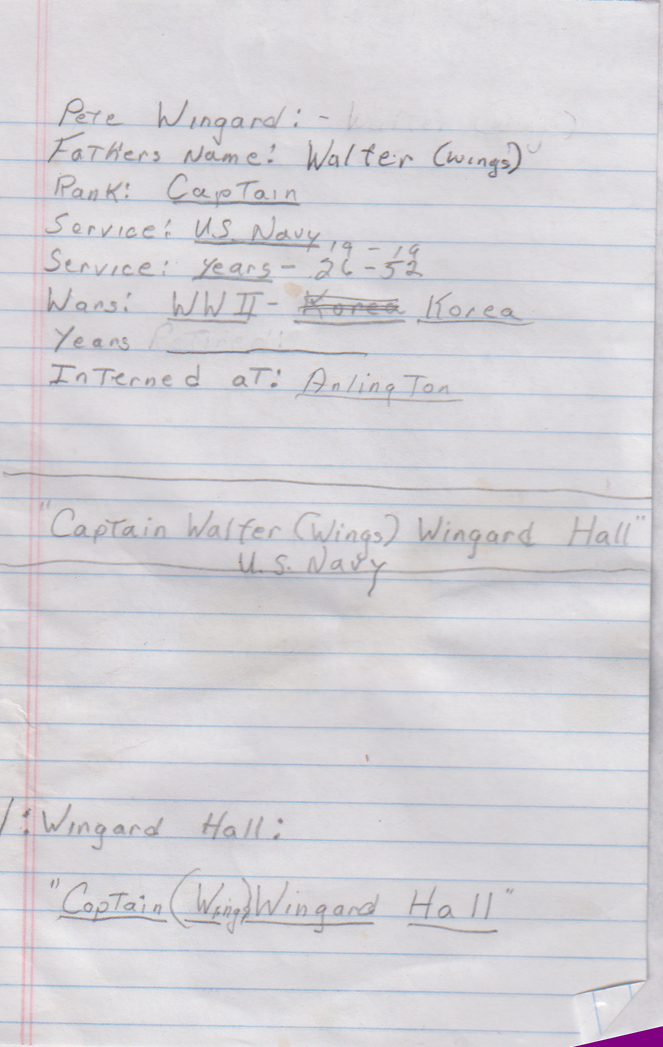 Pete Wingard: -
Fathers Name: Walter (Wings)
Rank: Captain
Service: U.S. Navy
Service: years - 1926 - 1952
Wars: WW II - Korea Korea
Years
Interned at: Arlington
"Captain Walter (Wings) Wingard Hall"
U.S. Navy
1: Wingard Hall:
"Captain (Wings) Wingard Hall"